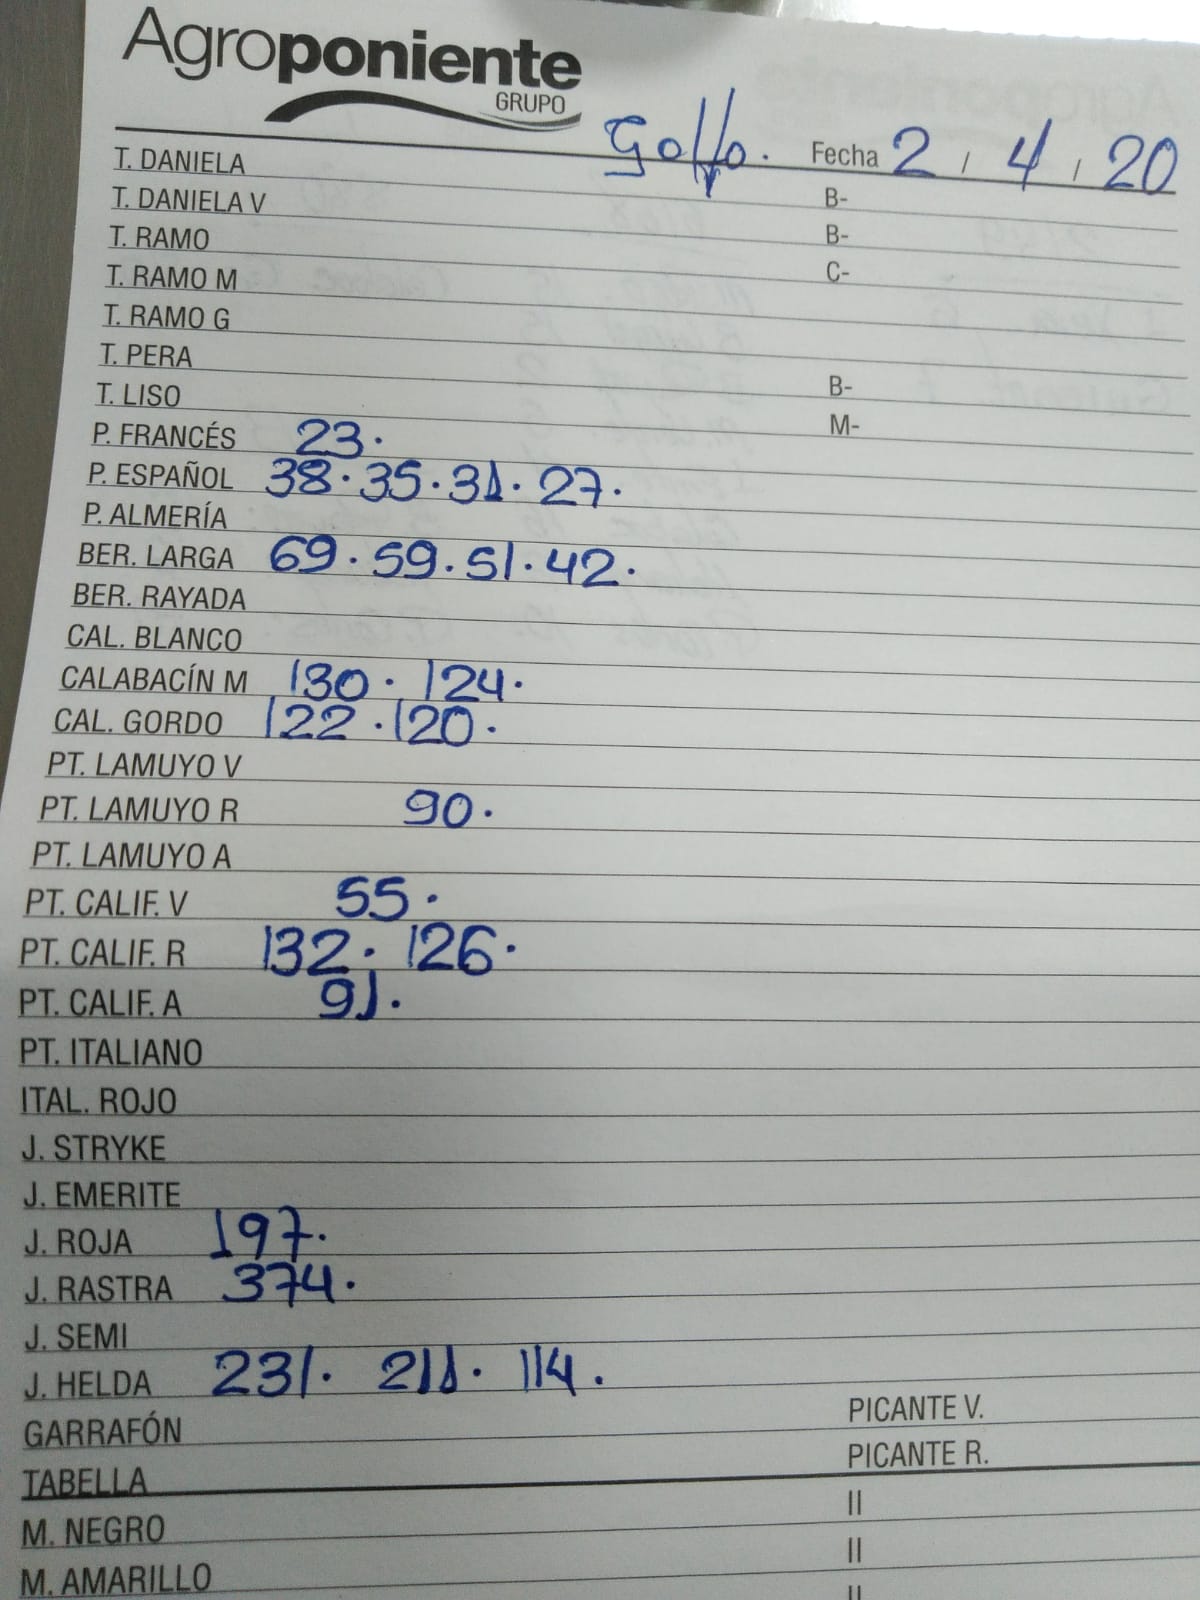 Agroponiente
GRUPO
Golfo. Fecha 2 / 4 / 20
T. DANIELA B-
T. DANIELA V B-
T. RAMO C-
T. RAMO M
T. RAMO G
T. PERA B-
T. LISO M-
P. FRANCÉS 23.
P. ESPAÑOL 38. 35. 31. 27.
P. ALMERÍA
BER. LARGA 69. 59. 51. 42.
BER. RAYADA
CAL. BLANCO
CALABACÍN M 130. 124.
CAL. GORDO 122. 120.
PT. LAMUYO V
PT. LAMUYO R 90.
PT. LAMUYO A
PT. CALIF. V 55.
PT. CALIF. R 132. 126.
PT. CALIF. A 91.
PT. ITALIANO
ITAL. ROJO
J. STRYKE
J. EMERITE
J. ROJA 197.
J. RASTRA 374.
J. SEMI
J. HELDA 231. 211. 114.
GARRAFÓN PICANTE V.
TABELLA PICANTE R.
M. NEGRO II
M. AMARILLO II
II